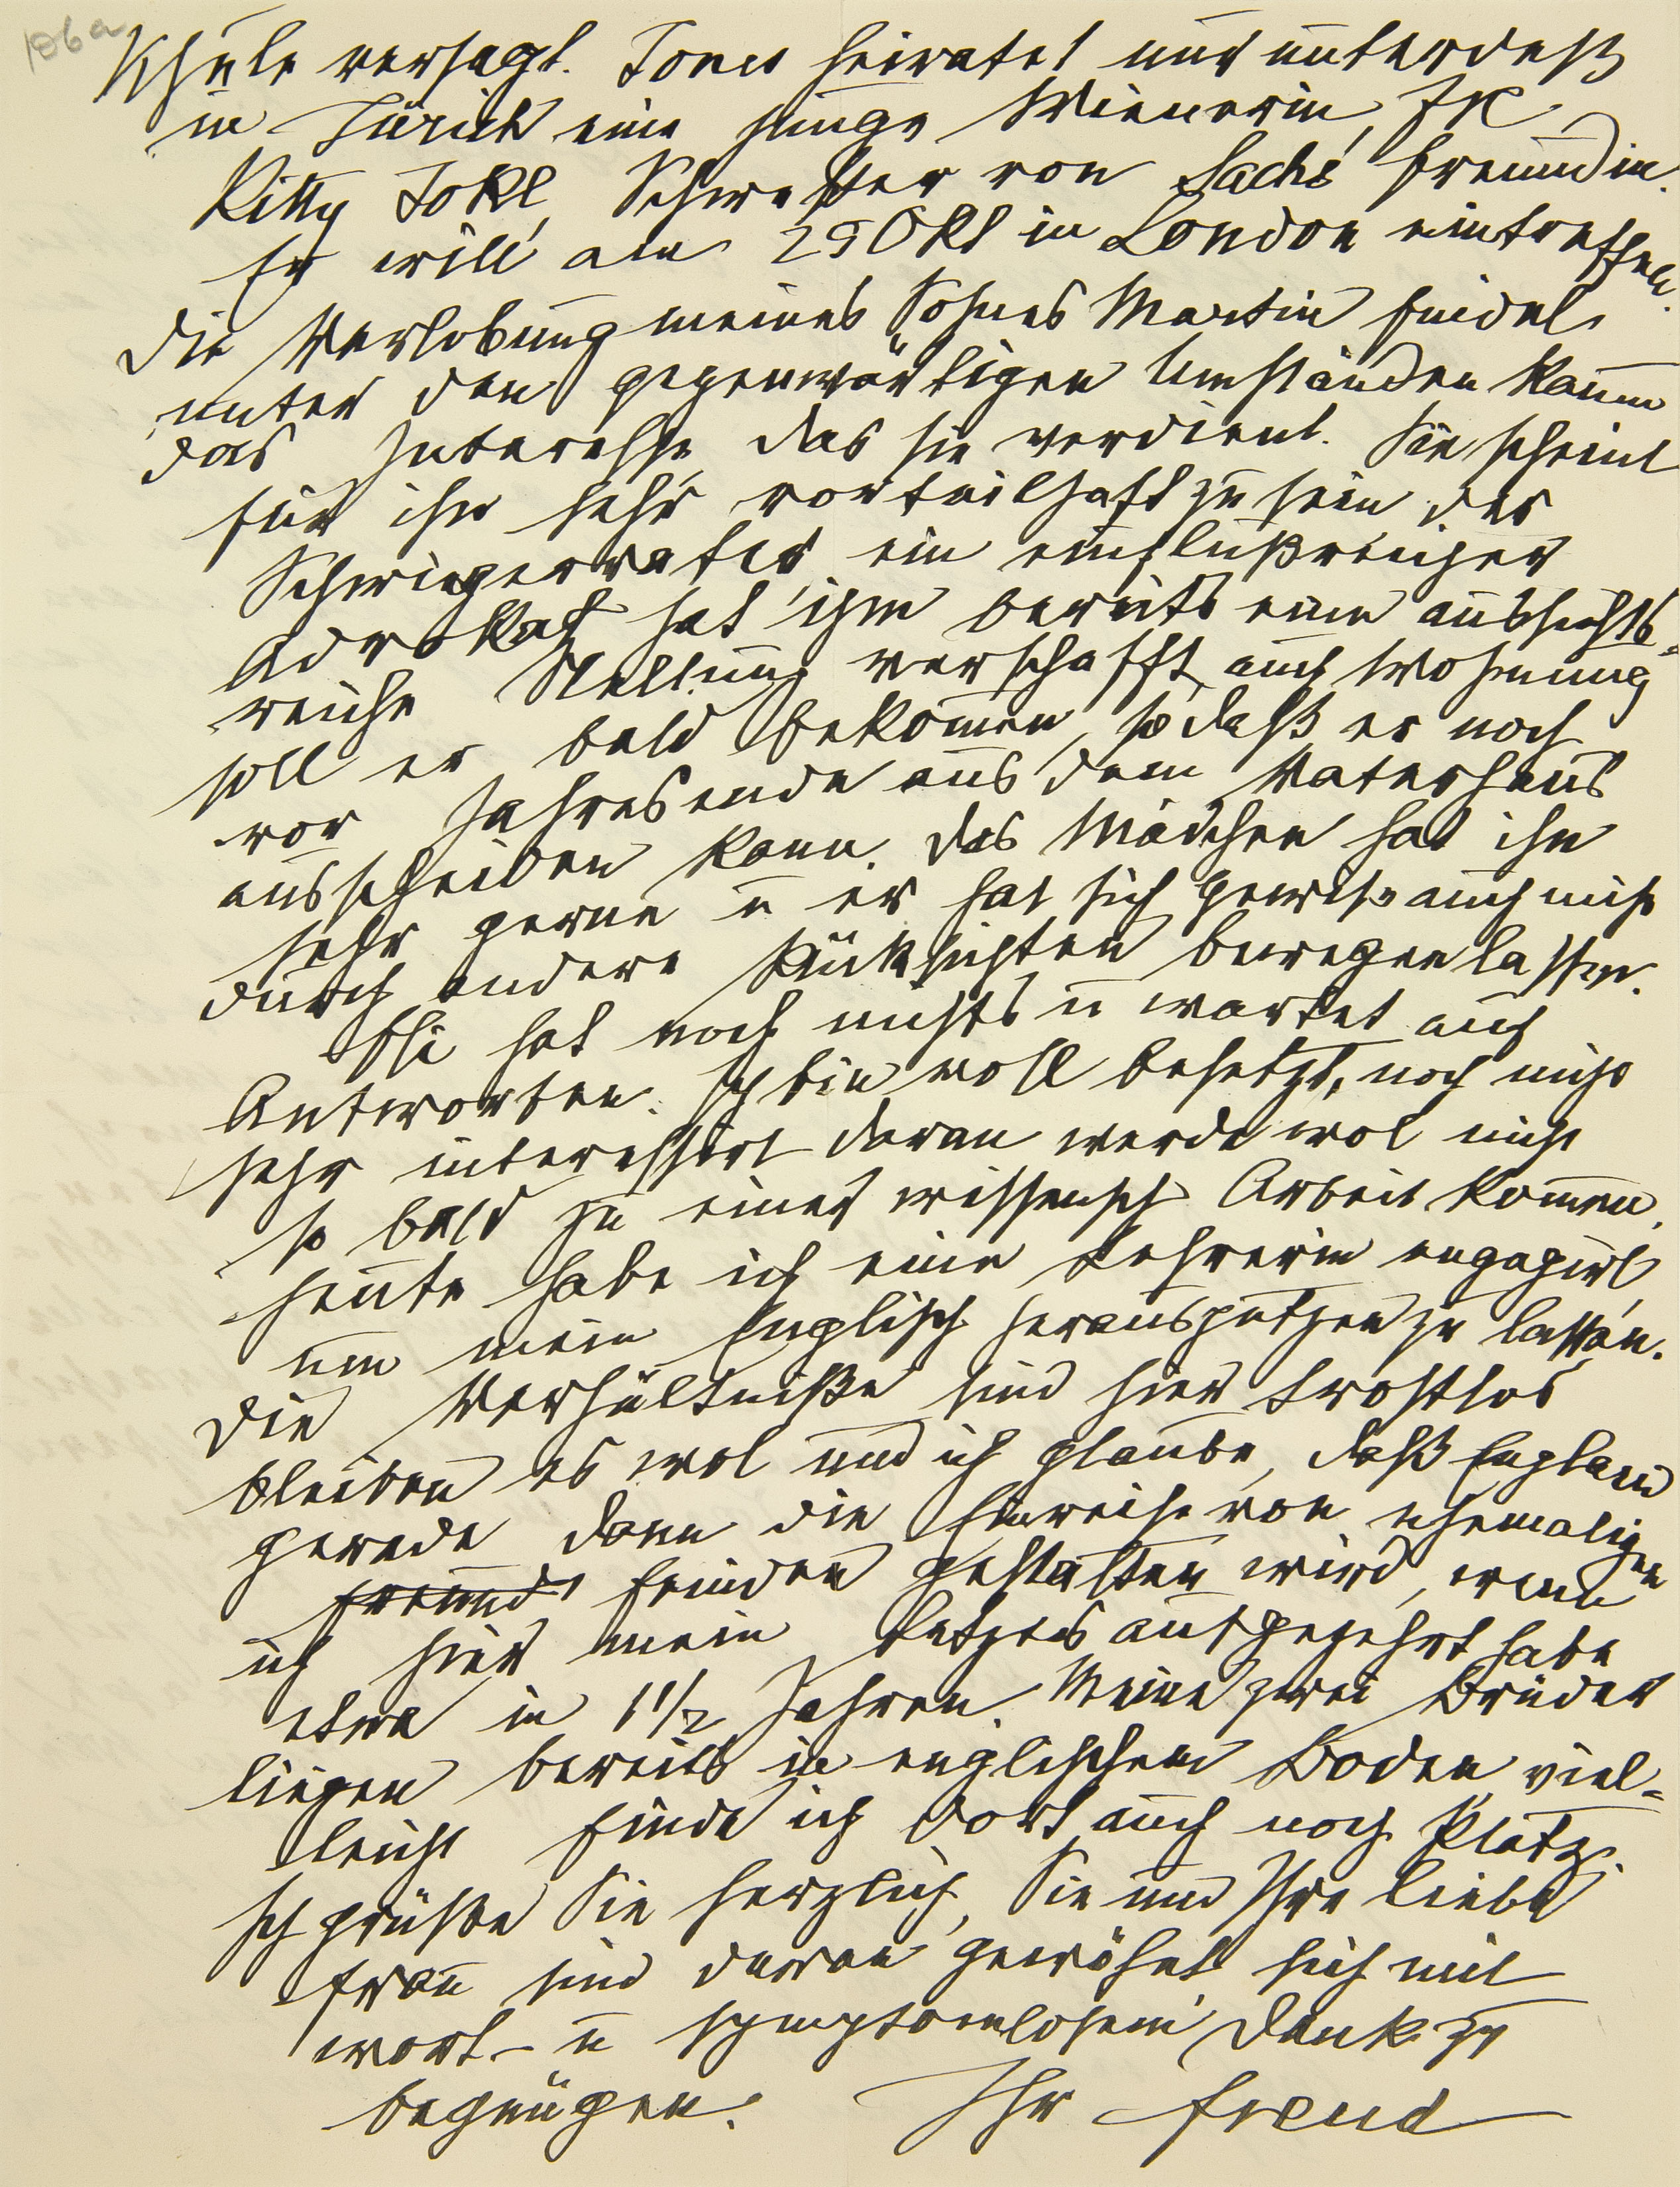 106a
Schule versagt. Jones heiratet nun unterdeß
in Zürich eine junge Wienerin, Frl
Kitty Jokl, Schwester von Sachs' Freundin.
Er will am 29 Okt in London eintreffen.
Die Verlobung meines Sohnes Martin findet
unter den gegenwärtigen Umständen kaum
das Interesse, das sie verdient. Sie scheint
für ihn sehr vorteilhaft zu sein, der
Schwiegervater ein einflußreicher
Advokat hat ihm bereits eine aussichts-
reiche Stellung verschafft, auch Wohnung
soll er bald bekom̄en, so daß er noch
vor Jahresende aus dem Vaterhaus
ausscheiden kann. Das Mädchen hat ihn
sehr gerne u er hat sich gewiß auch nicht
durch andere Rücksichten bewegen lassen.
hat noch nichts u wartet auf
Antworten. Ich bin voll besetzt, noch nicht
sehr interessirt daran, werde wol nicht
so bald zu einer wissensch Arbeit kom̄en.
Heute habe ich eine Lehrerin engagirt,
um mein Englisch herausputzen zu lassen.
Die Verhältniße sind hier trostlos
bleiben es wol und ich glaube, daß England
gerade dann die Einreise von ehemaligen
Feinden gestatten wird, wenn
ich hier mein Letztes aufgezehrt habe
etwa in 1 1/2 Jahren. Meine zwei Brüder
liegen bereits in englischem Boden, viel-
leicht finde ich dort auch noch Platz.
Ich grüße Sie herzlich, Sie und Ihre liebe
Frau sind daran gewöhnt sich mit
wort- u symptomlosem Dank zu
begnügen.    Ihr Freud